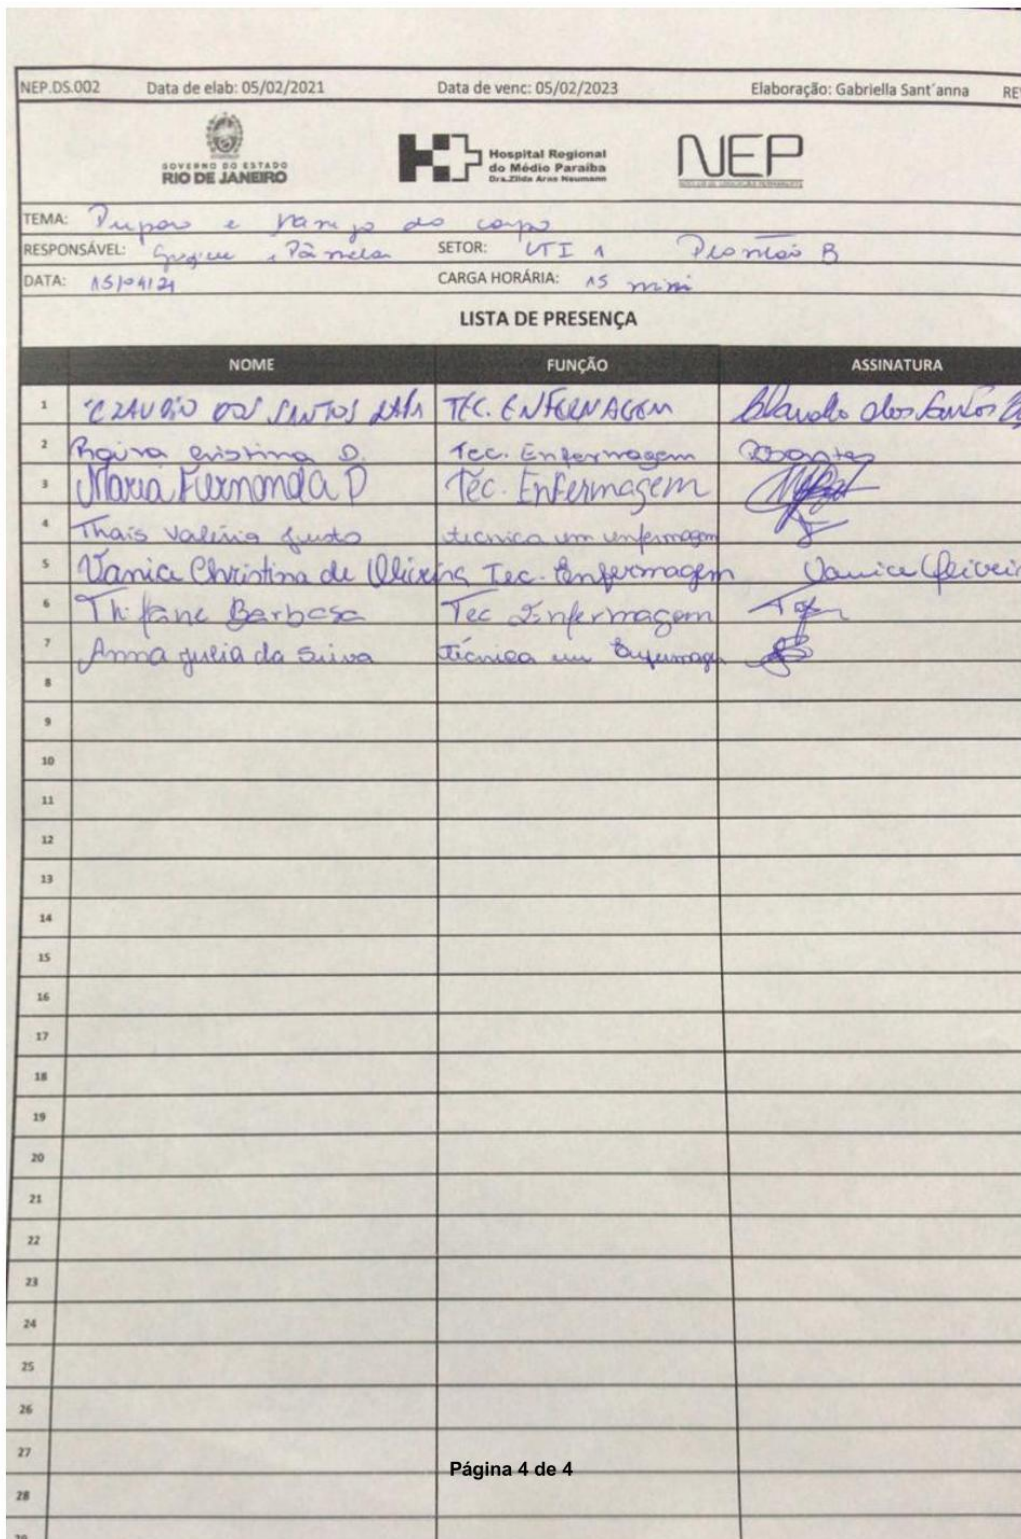 NEP.DS.002 Data de elab: 05/02/2021 Data de venc: 05/02/2023 Elaboração: Gabriella Sant´anna RE
GOVERNO DO ESTADO
RIO DE JANEIRO
Hospital Regional
do Médio Paraíba
Dra.Zilda Arns Neumann
NEP
NÚCLEO DE EDUCAÇÃO PERMANENTE
TEMA: Preparo e Manejo do corpo
RESPONSÁVEL: Pâmela SETOR: UTI 1 Plantão B
DATA: 15/04/21 CARGA HORÁRIA: 15 min
LISTA DE PRESENÇA
NOME FUNÇÃO ASSINATURA
1 CLAUDIO DOS SANTOS TEC. ENFERMAGEM Claudio dos Santos
2 cristina D. Tec. Enfermagem
3 Maria Fernanda P Téc. Enfermagem
4 Thais Valéria Justo técnica em enfermagem
5 Vanice Christina de Oliveira Tec. Enfermagem Vanice Oliveir
6 Thifane Barbosa Tec Enfermagem
7 Anna Julia da Silva técnica em Enfermagem
8
9
10
11
12
13
14
15
16
17
18
19
20
21
22
23
24
25
26
27
Página 4 de 4
28
29